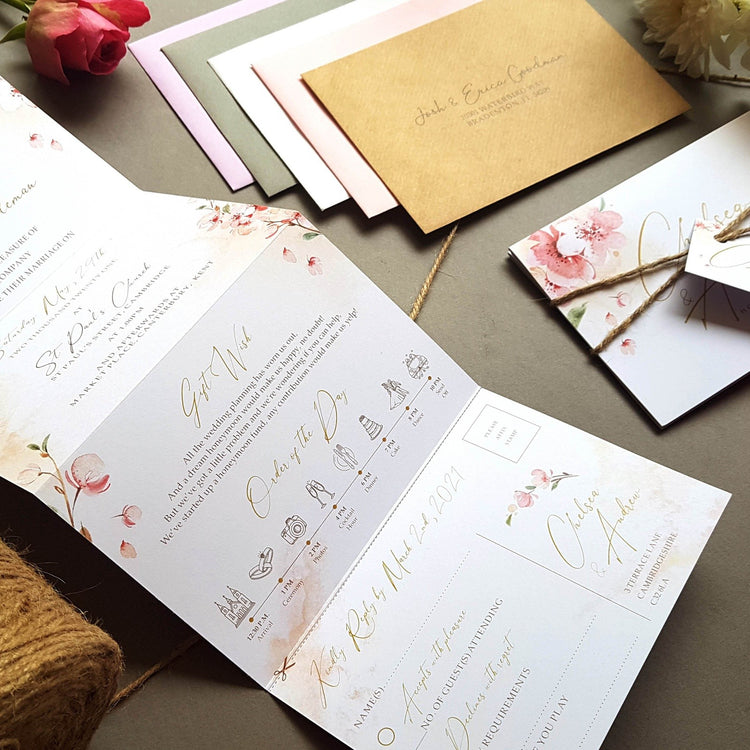 Josh & Erica Goodman
WATERBIRD WAY
BRADENTON, FL
COMPANY
THEIR MARRIAGE ON
Saturday May, 29th
TWO THOUSAND
AT
St Paul's Church
ST PAULS STREET, CAMBRIDGE
AT 1:00PM
AND AFTERWARDS AT
MARKET PLACE, KENT
Gift Wish
All the wedding planning has worn us out,
And a dream honeymoon would make us happy, no doubt!
But we've got a little problem and we're wondering if you can help,
We've started up a honeymoon fund, any contribution would make us yelp!
Order of the Day
12:30 PM
Arrival
1 PM
Ceremony
2 PM
Photos
4 PM
Cocktail
Hour
6 PM
Dinner
7 PM
Cake
8 PM
Dance
10 PM
Send
Off
PLEASE
AFFIX
STAMP
Chelsea
& Andrew
3 TERRACE LANE
CAMBRIDGESHIRE
Kindly Reply by March 2nd, 2021
NAME(S)
Accepts with pleasure
NO. OF GUEST(S) ATTENDING
Declines with regret
REQUIREMENTS
YOU PLAY
Chelsea
&